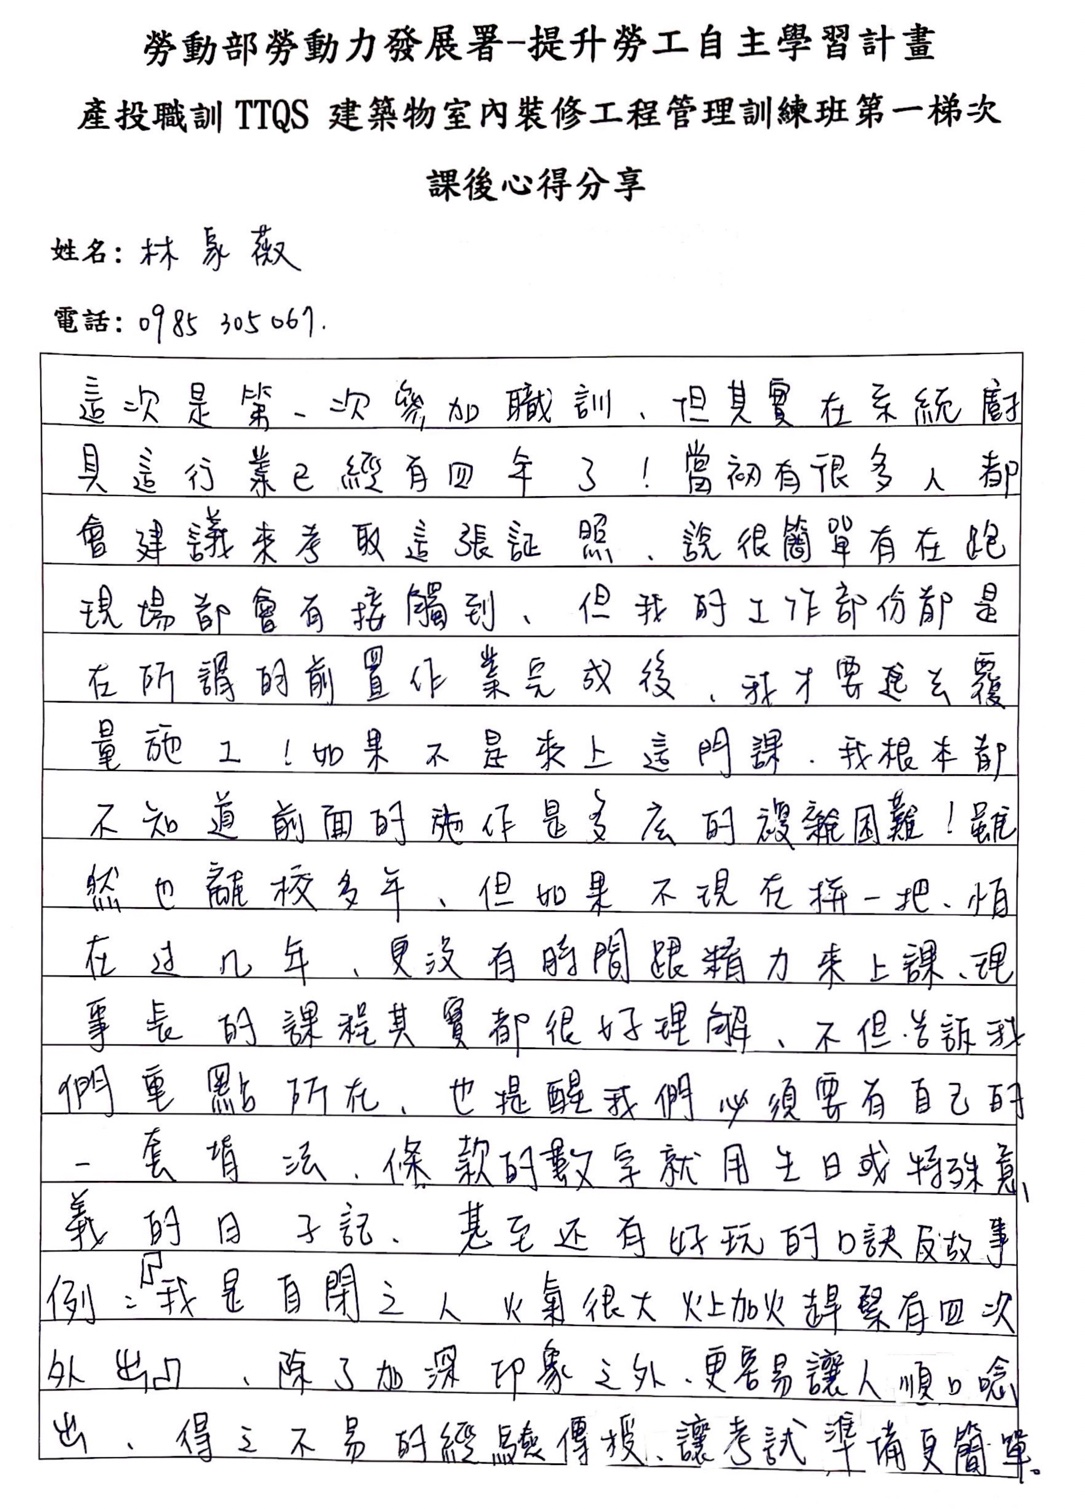 勞動部勞動力發展署-提升勞工自主學習計畫
產投職訓 TTQS 建築物室內裝修工程管理訓練班第一梯次
課後心得分享
姓名：林家薇
電話：0985 305067.
這次是第一次參加職訓、但其實在系統廚
具這行業已經有四年了！當初有很多人都
會建議來考取這張証照、說很簡單有在跑
現場都會有接觸到、但我的工作部份都是
在所謂的前置作業完成後、我才要進去覆
量施工！如果不是來上這門課、我根本都
不知道前面的施作是多庅的複雜困難！雖
然也離校多年、但如果不現在拼一把、怕
在过几年、更沒有時間跟精力來上課、理
事長的課程其實都很好理解、不但告訴我
們重點所在、也提醒我們必須要有自己的
一套背法、條款的數字就用生日或特殊意
義的日子記、甚至还有好玩的口訣及故事
例：「我是自閉之人火氣很大火上加火趕緊有四次
外出」、除了加深印象之外、更容易讓人順口唸
出、得之不易的經驗傳授、讓考試準備更簡單。